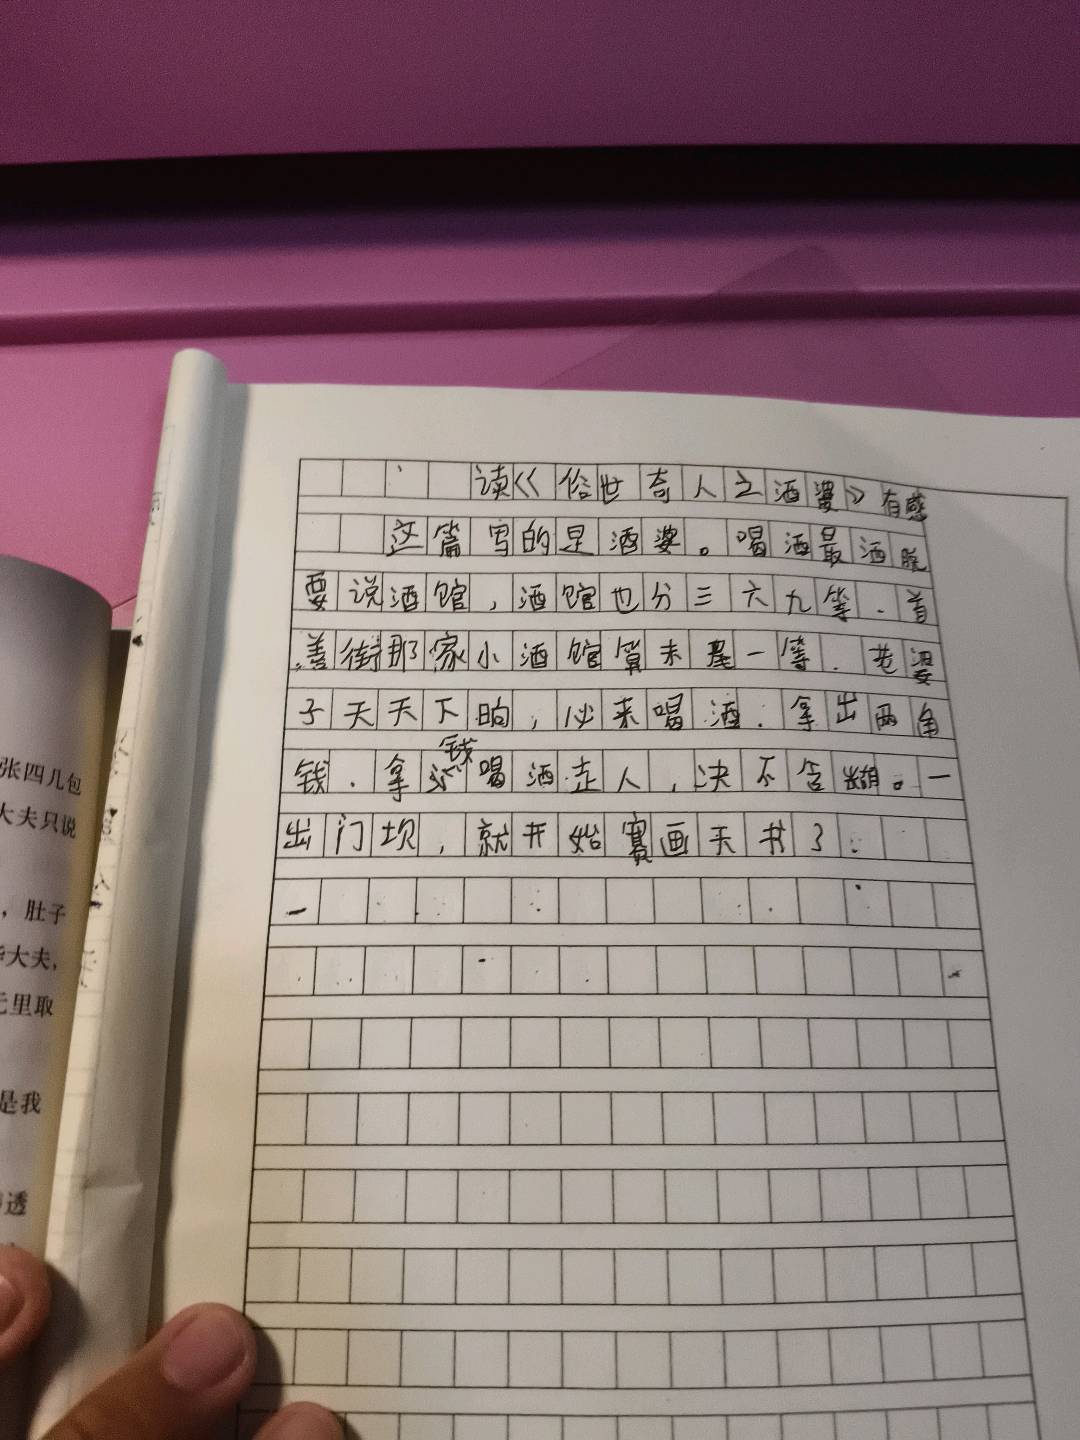 读《俗世奇人之酒婆》有感
这篇写的是酒婆。喝酒最洒脱
要说酒馆，酒馆也分三六九等．首
善街那家小酒馆算末尾一等．老婆
子天天下晌，必来喝酒．拿出两角
钱．拿钱喝酒走人，决不含糊。一
出门坝，就开始赛画天书了．
张四几包
大夫只说
，肚子
大夫，
里取
是我
透